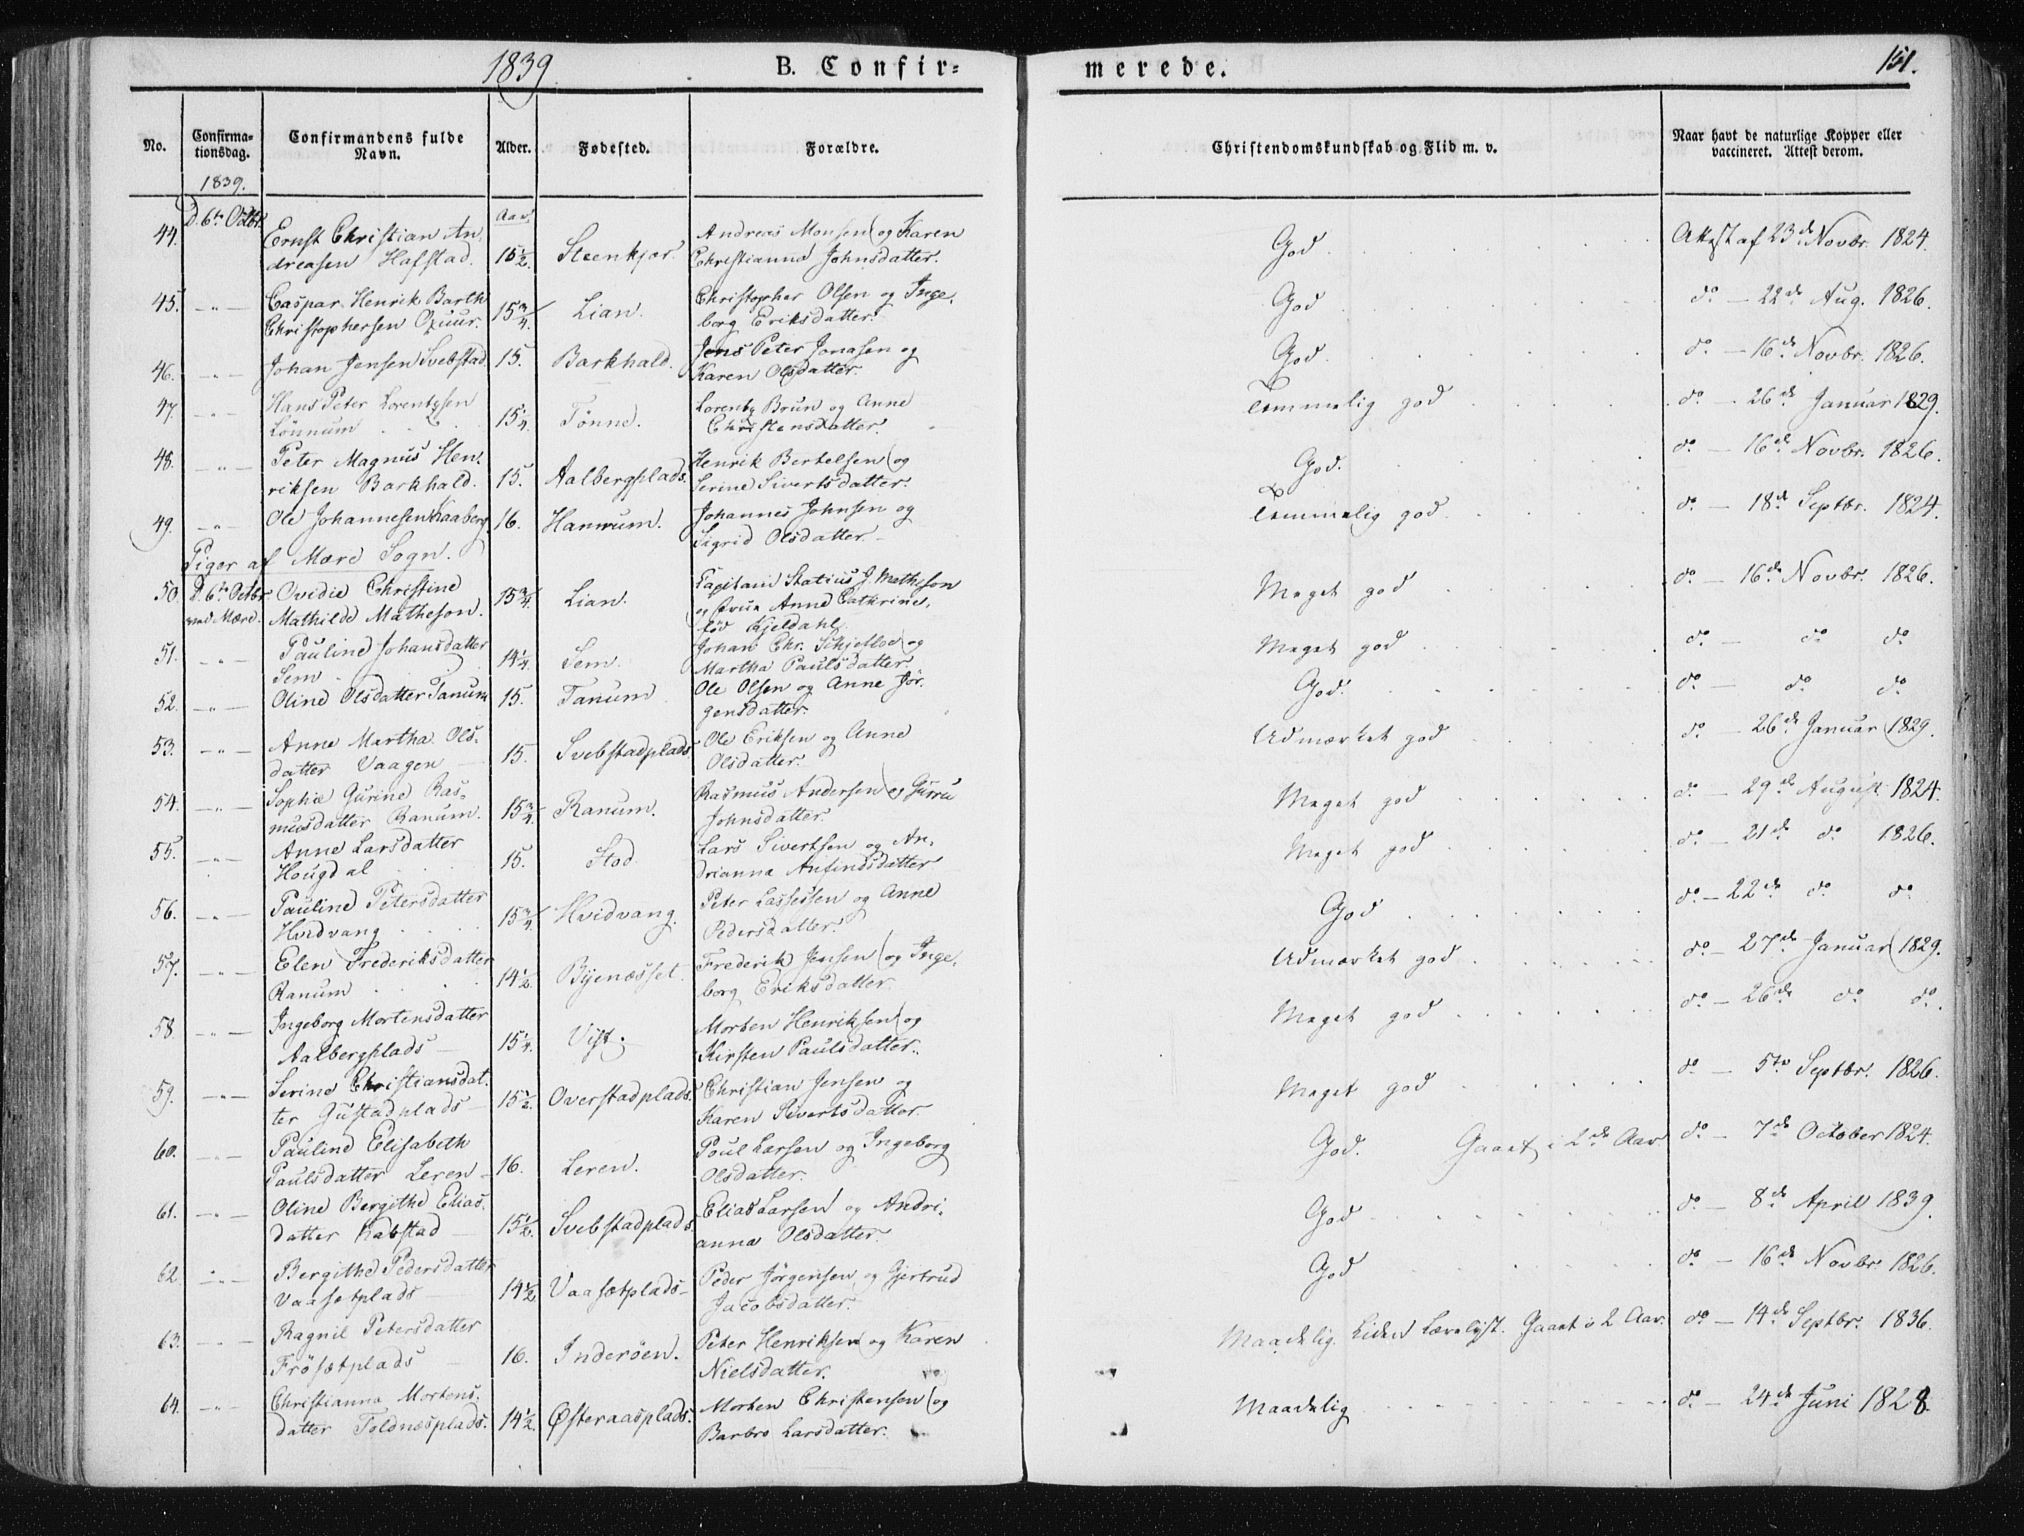 1839.
B. Confir-
merede.
151.
No.
Confirma-
tionsdag.
Confirmandens fulde
Navn.
Alder.
Fødested.
Forældre.
Christendomskundskab og Flid m. v.
Naar havt de naturlige Kopper eller
vaccineret. Attest derom.
1839.
D. 6te Octbr. Aar.
44. Ernst Christian An- Andreas Monsen og Karen
dreasen Hafstad. 15½. Steenkjær. Christianna Johnsdatter. God. Attest af 23de Novbr. 1824.
45. -"- Caspar Henrik Barth Christopher Olsen og Inge-
Christophersen Oxuur. 15¾. Lian. borg Eriksdatter. God do - 22de Aug. 1826.
46. -"- Johan Jensen Svebstad 15. Barkhald. Jens Peter Jonasen og
Karen Olsdatter. God. do - 16de Novbr. 1826.
47. -"- Hans Peter Lorentzsen Lorentz Brun og Anne
Lönnum 15¼. Tönne. Christensdatter. Temmelig god do - 26de Januar 1829.
48. -"- Peter Magnus Hen- Henrik Bertelsen og
riksen Barkhald. 15. Aalbergplads. Serine Sivertsdatter. God. do - 16de Novbr. 1826.
49. -"- Ole Johannesen Kaaberg 16. Hamrum. Johannes Johnsen og
Sigrid Olsdatter - Temmelig god do - 18de Septbr. 1824.
Piger af Mære Sogn.
50. D. 6te Octbr. Ovidie Christine Capitain Statius J. Matheson
ved Mære. Mathilde Matheson. 15¾ Lian. og Frue Anne Cathrine,
fød Kjeldahl. Meget god do - 16de Novbr. 1826.
51. -"- Pauline Johansdatter Johan Chr. Schjelloe og
Sem - 14¼. Sem. Martha Paulsdatter Meget god do - do do
52. -"- Oline Olsdatter Tanum 15. Tanum Ole Olsen og Anne Jör-
gensdatter. God. do - do do
53. -"- Anne Martha Ols- Ole Eriksen og Anne
datter Vaagen 15. Svebstadplads Olsdatter. Udmærket god do - 26de Januar 1829.
54. -"- Sophie Gurine Ras- Rasmus Andersen og Gurru
musdatter Ranum. 15¾. Ranum. Johnsdatter. Meget god do - 29de August 1824.
55. -"- Anne Larsdatter Lars Sivertsen og An-
Hougdal 15. Stod. drianna Anfindsdatter Meget god do - 21de do 1826.
56. -"- Pauline Petersdatter Peter Lassessen og Anne
Hvidvang 15¾. Hvidvang. Pedersdatter. God do - 22de do do
57. -"- Elen Frederiksdatter Frederik Jensen og Inge-
Ranum 14½. Byenæsset. borg Eriksdatter Udmærket god do - 27de Januar 1829.
58. -"- Ingeborg Mortensdatter Morten Henriksen og
Aalbergplads - 15¼. Vist. Kirsten Paulsdatter. Meget god do - 26de do do
59. -"- Serine Christiansdat- Christian Jensen og
ter Gustadplads - 15½. Overstadplads. Karen Sivertsdatter Meget god do - 5te Septbr. 1826.
60. -"- Pauline Elisabeth Poul Larsen og Ingeborg
Paulsdatter Leren - 16. Leren. Olsdatter. God. Gaaet i 2de Aar do - 7de October 1824.
61. -"- Oline Bergithe Elias- Elias Larsen og Andri-
datter Kabstad 15½. Svebstadplads anna Olsdatter. God do - 8de April 1839.
62. -"- Bergithe Pedersdatter Peder Jörgensen og Gjertrud
Vaasetplads - 14½ Vaasætplads - Jacobsdatter. God do - 16de Novbr. 1826.
63. -"- Ragnil Petersdatter Peter Henriksen og Karen
Frösetplads - 16. Inderöen. Nielsdatter. Maadelig. Liden Lærelyst. Gaaet i 2 Aar. do - 14de Septbr. 1836.
64. -"- Christianna Mortens- Morten Christensen og
datter Foldnæsplads. 14½. Østeraasplads. Barbro Larsdatter. Maadelig do - 24de Juni 1828.